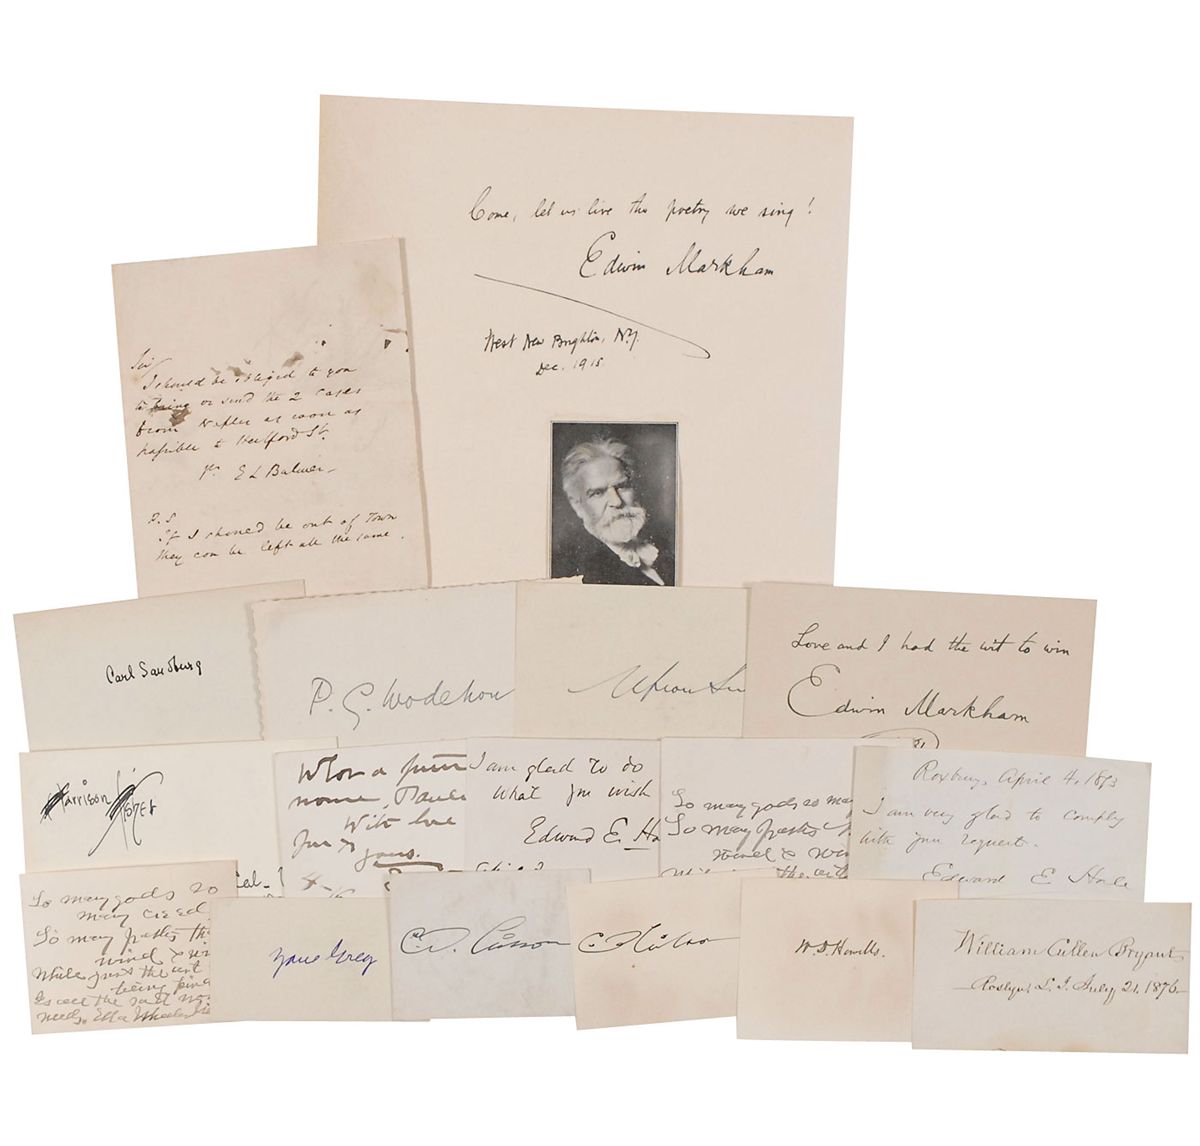 Come, let us live the poetry we sing!
Edwin Markham
West New Brighton, N.Y.
Dec. 1915.
Sir
I should be obliged to you
to bring or send the 2 cases
from as soon as
possible to Hertford St.
E L Bulwer
P.S
If I should be out of Town
they can be left all the same.
Carl Sandburg
P. G. Wodehou
Upton Sin
Love and I had the wit to win
Edwin Markham
Harrison Fisher
With love
yours.
I am glad to do
what you wish
Edward E. Ha
So many gods so many
So many paths
wind & win
Roxbury, April 4, 1893
I am very glad to comply
with your request.
Edward E Hale
So many gods so
many creeds
So many paths th
wind & wi
While just the art
being kind
Is all the sad
needs. Ella Wheeler
Zane Grey
William Cullen Bryant
Roslyn, L. I. July 21, 1876.
W. D. Howells.